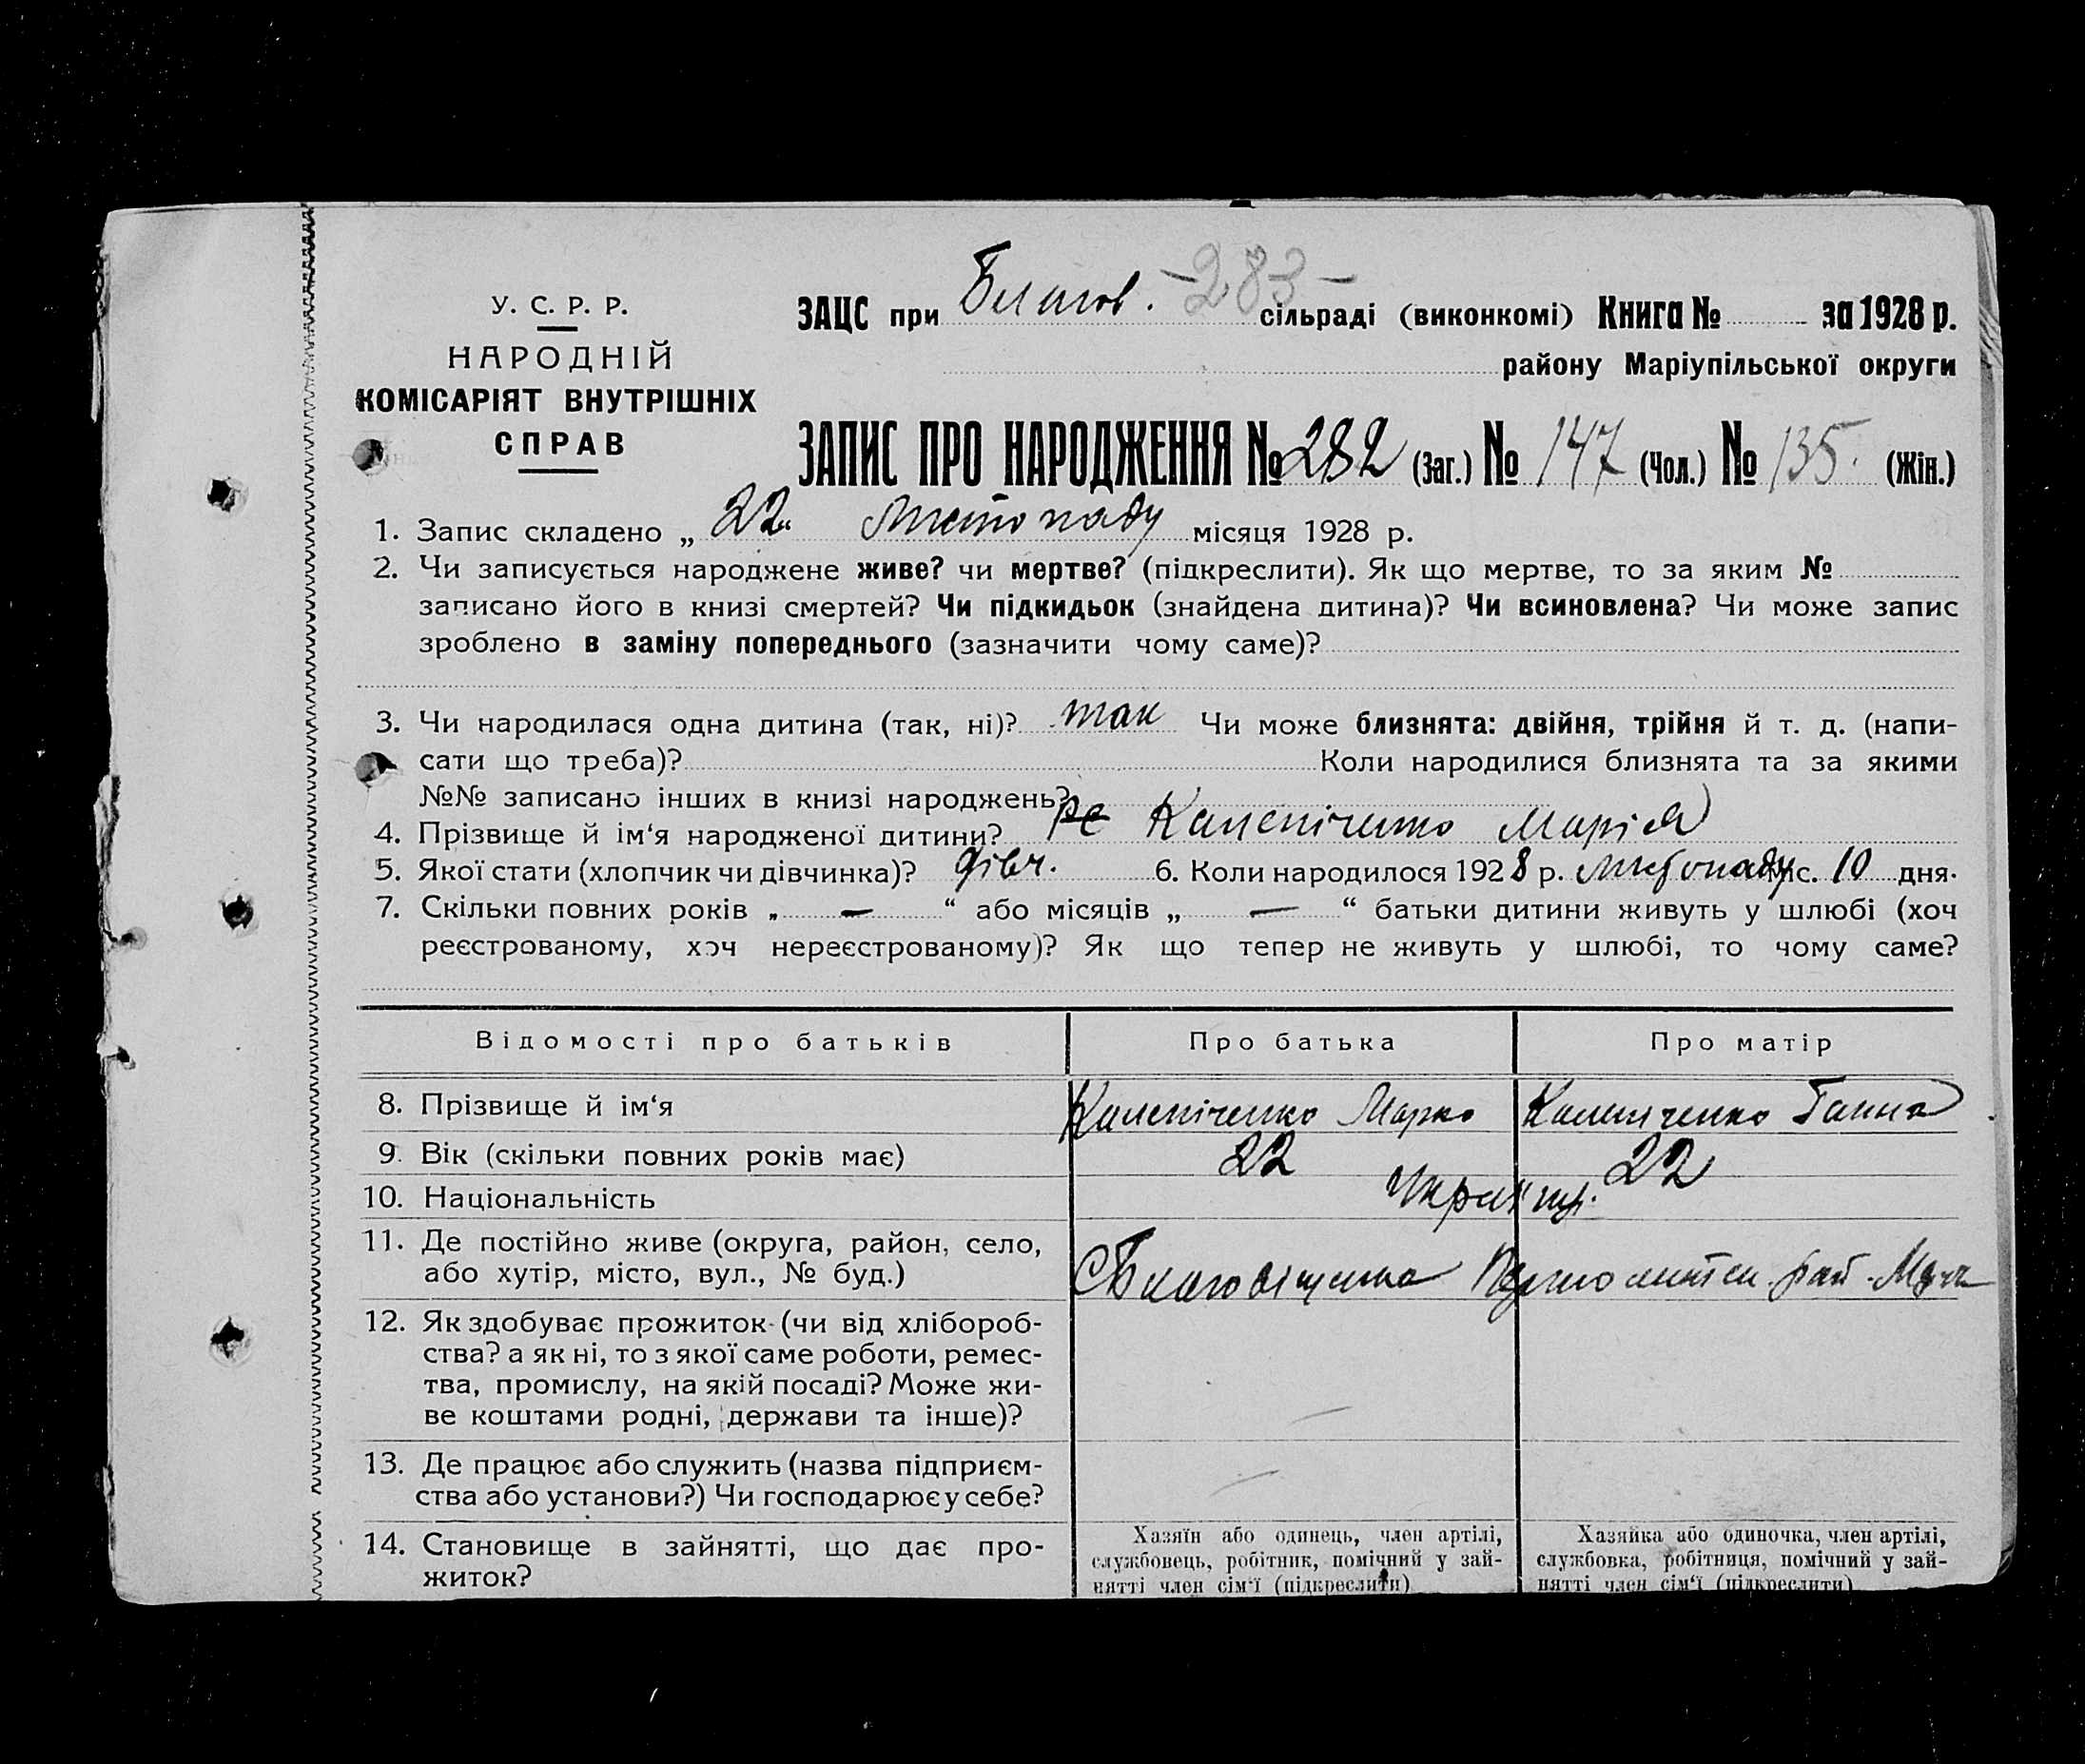 - 283 -
У. С. Р. Р.
ЗАЦС при Благов. сільраді (виконкомі) Книга № за 1928 р.
НАРОДНІЙ
району Маріупільської округи
КОМІСАРІЯТ ВНУТРІШНІХ
СПРАВ
ЗАПИС ПРО НАРОДЖЕННЯ № 282 (Заг.) № 147 (Чол.) № 135. (Жін.)
1. Запис складено „ 22 “ Листопаду місяця 1928 р.
2. Чи записується народжене живе? чи мертве? (підкреслити). Як що мертве, то за яким №
записано його в книзі смертей? Чи підкидьок (знайдена дитина)? Чи всиновлена? Чи може запис
зроблено в заміну попереднього (зазначити чому саме)?
3. Чи народилася одна дитина (так, ні)? так Чи може близнята: двійня, трійня й т. д. (напи-
сати що треба)? Коли народилися близнята та за якими
№№ записано інших в книзі народжень?
4. Прізвище й ім‘я народженої дитини? Калепіченко Марія
5. Якої стати (хлопчик чи дівчинка)? дівч. 6. Коли народилося 1928 р. Листопаду міс. 10 дня.
7. Скільки повних років „ — “ або місяців „ — “ батьки дитини живуть у шлюбі (хоч
реєстрованому, хоч нереєстрованому)? Як що тепер не живуть у шлюбі, то чому саме?
Відомості про батьків Про батька Про матір
8. Прізвище й ім‘я Калепіченко Марко Калепіченко Ганна
9. Вік (скільки повних років має) 22 22
10. Національність Україн.
11. Де постійно живе (округа, район, село,
або хутір, місто, вул., № буд.) С Благовіщенка рай.
12. Як здобуває прожиток (чи від хлібороб-
ства? а як ні, то з якої саме роботи, ремес-
тва, промислу, на якій посаді? Може жи-
ве коштами родні, держави та інше)? —
13. Де працює або служить (назва підприєм-
ства або установи?) Чи господарює у себе? —
14. Становище в зайнятті, що дає про-
житок?
Хазяїн або одинець, член артілі,
службовець, робітник, помічний у зай-
нятті член сім‘ї (підкреслити)
Хазяйка або одиночка, член артілі,
службовка, робітниця, помічний у зай-
нятті член сім‘ї (підкреслити)